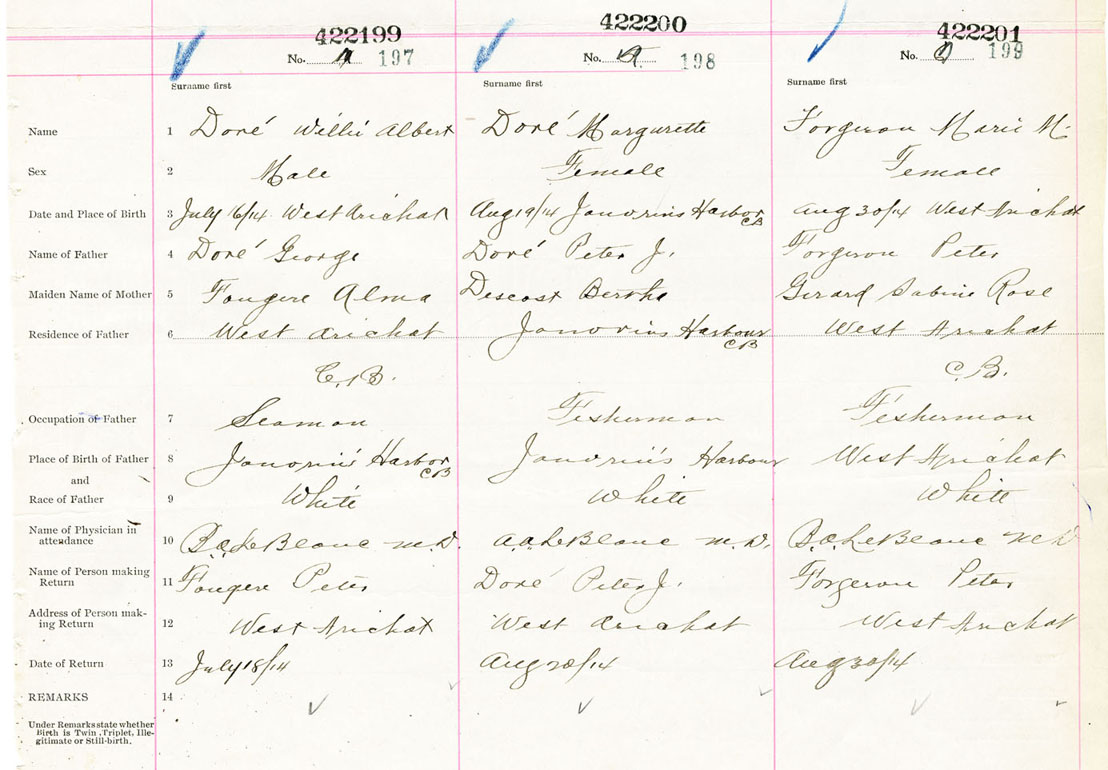 422199 422200 422201
No. 197 No. 198 No. 199
Surname first Surname first Surname first
Name 1 Doré Willie Albert Doré Margurette Forgeron Marie M.
Sex 2 Male Female Female
Date and Place of Birth 3 July 16/14 West Arichat Aug 19/14 Janvrins Harbor CB Aug 30/14 West Arichat
Name of Father 4 Doré George Doré Peter J. Forgeron Peter
Maiden Name of Mother 5 Fougere Alma Descost Bertha Gerard Sabine Rose
Residence of Father 6 West Arichat Janvrins Harbour CB West Arichat
C.B. C.B.
Occupation of Father 7 Seaman Fisherman Fisherman
Place of Birth of Father 8 Janvrin's Harbor CB Janvrin's Harbour West Arichat
and
Race of Father 9 White White White
Name of Physician in
attendance 10 B.A. LeBlanc M.D. A.A. LeBlanc M.D. B.A. LeBlanc M.D
Name of Person making
Return 11 Fougere Peter Doré Peter J. Forgeron Peter
Address of Person mak-
ing Return 12 West Arichat West Arichat West Arichat
Date of Return 13 July 18/14 Aug 20/14 Aug 30/14
REMARKS 14
Under Remarks state whether
Birth is Twin, Triplet, Ille-
gitimate or Still-birth.